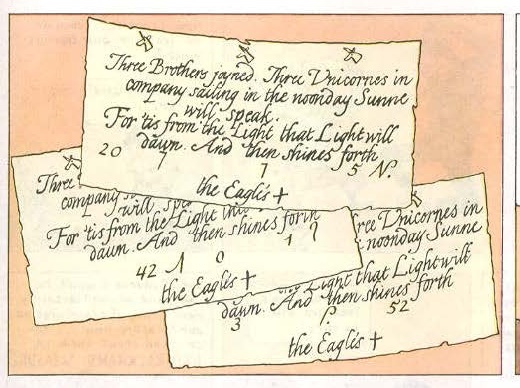 Three Brothers joyned. Three Unicornes in
company sailing in the noonday Sunne
will speak.
For 'tis from the Light that Light will
dawn. And then shines forth
20 7 7 5 N.
the Eagle's +
Three
company
will
For 'tis from the Light
dawn. And then shines forth
42 1 0 1
the Eagle's +
Unicornes in
noonday Sunne
Light that Light will
dawn. And then shines forth
3 52
the Eagle's +